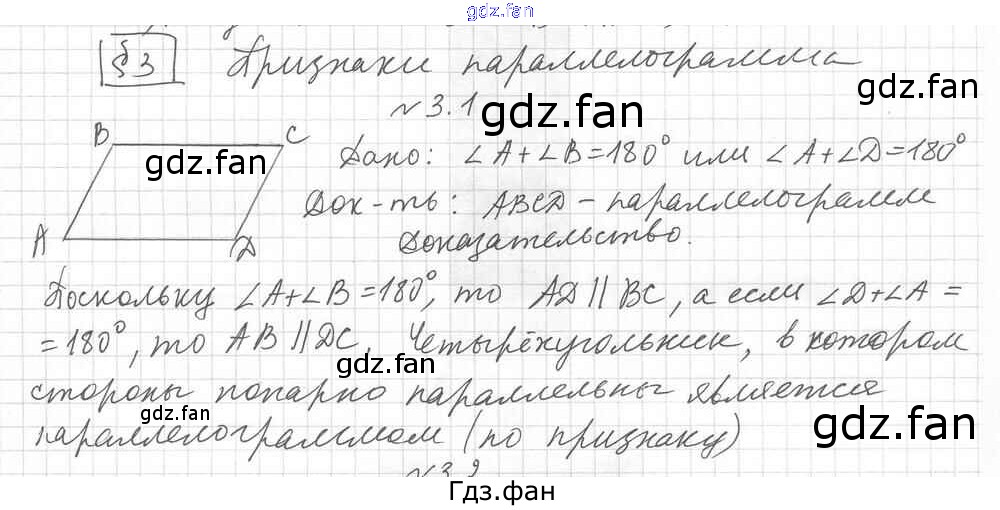 gdz.fan
§3 Признаки параллелограмма
gdz.fan
№3.1
gdz.fan
B C
gdz.fan
Дано: ∠A+∠B=180° или ∠A+∠D=180°
Док-ть: ABCD - параллелограмм
A D
Доказательство.
Поскольку ∠A+∠B=180°, то AD||BC, а если ∠D+∠A=
=180°, то AB||DC. Четырёхугольник, в котором
gdz.fan
стороны попарно параллельны является
gdz.fan
gdz.fan
параллелограммом (по признаку)
gdz.fan
Гдз.фан